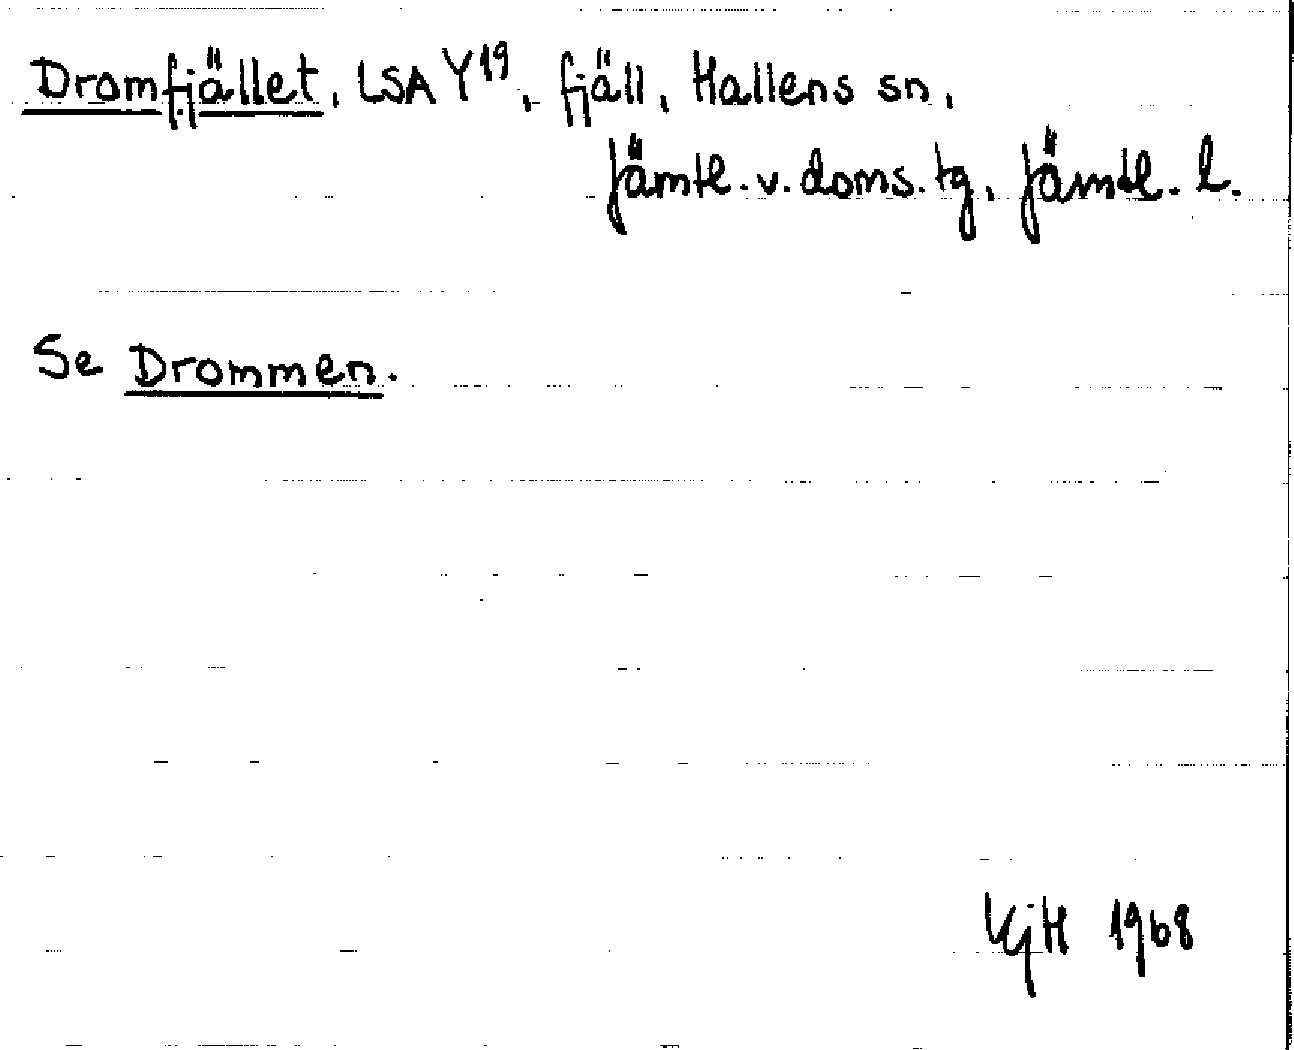 Dromfjället, LSA Y19, fjäll, Hallens sn,
Jämtl. v. doms. tg, Jämtl. l.
Se Drommen.
KjH 1968